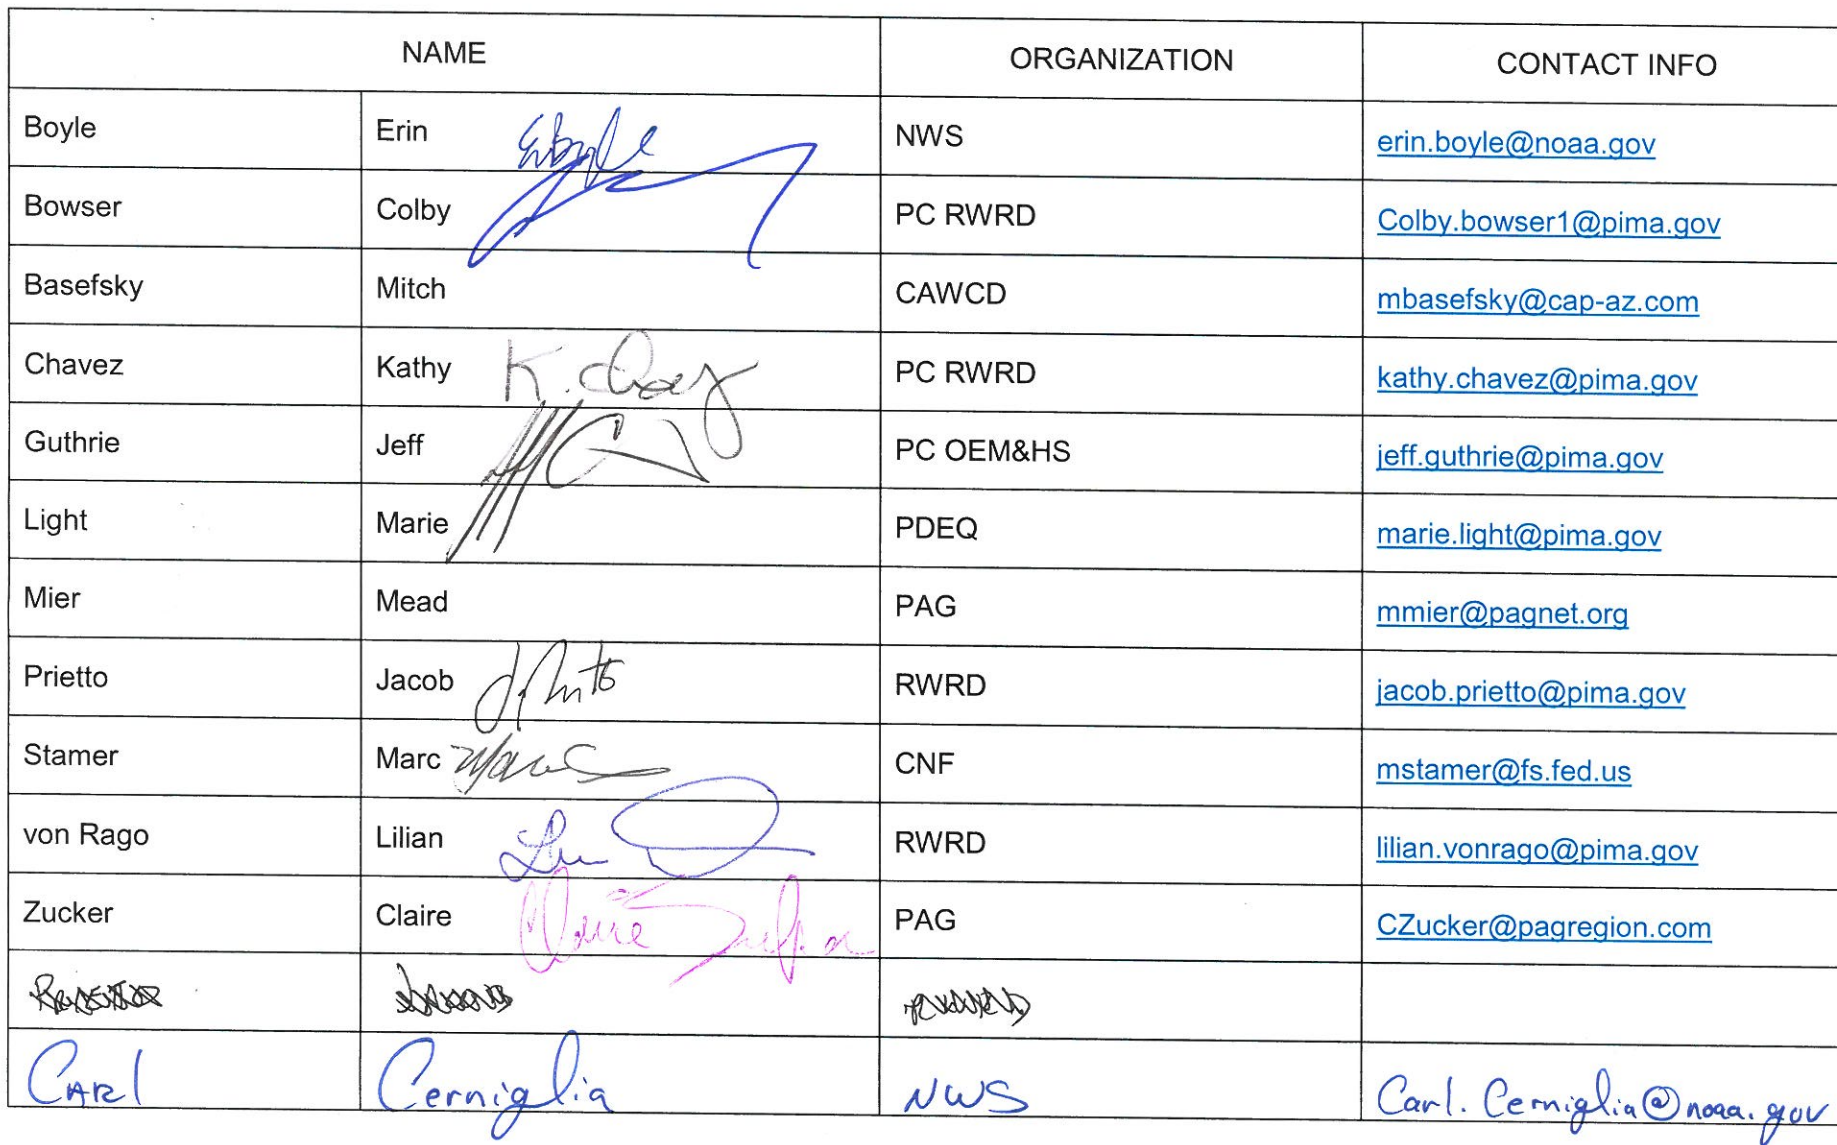 NAME ORGANIZATION CONTACT INFO
Boyle Erin EBoyle NWS erin.boyle@noaa.gov
Bowser Colby PC RWRD Colby.bowser1@pima.gov
Basefsky Mitch CAWCD mbasefsky@cap-az.com
Chavez Kathy K. Chavez PC RWRD kathy.chavez@pima.gov
Guthrie Jeff PC OEM&HS jeff.guthrie@pima.gov
Light Marie PDEQ marie.light@pima.gov
Mier Mead PAG mmier@pagnet.org
Prietto Jacob RWRD jacob.prietto@pima.gov
Stamer Marc CNF mstamer@fs.fed.us
von Rago Lilian RWRD lilian.vonrago@pima.gov
Zucker Claire Claire PAG CZucker@pagregion.com
CARl Cerniglia NWS Carl.Cerniglia@noaa.gov